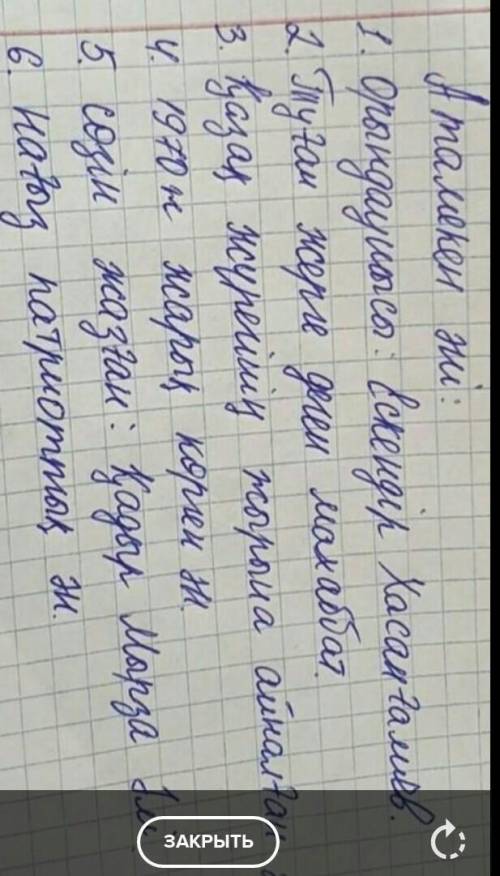 Атамекен әні:
1. Орындаушысы: Ескендір Хасанғалиев.
2. Туған жерге деген махаббат.
3. Қазақ жүрегінің жырына айналған
4. 1970 ж жарық көрген ән.
5. сөзін жазған: Қадыр Мырза
6. нағыз патриоттық ән.
ЗАКРЫТЬ